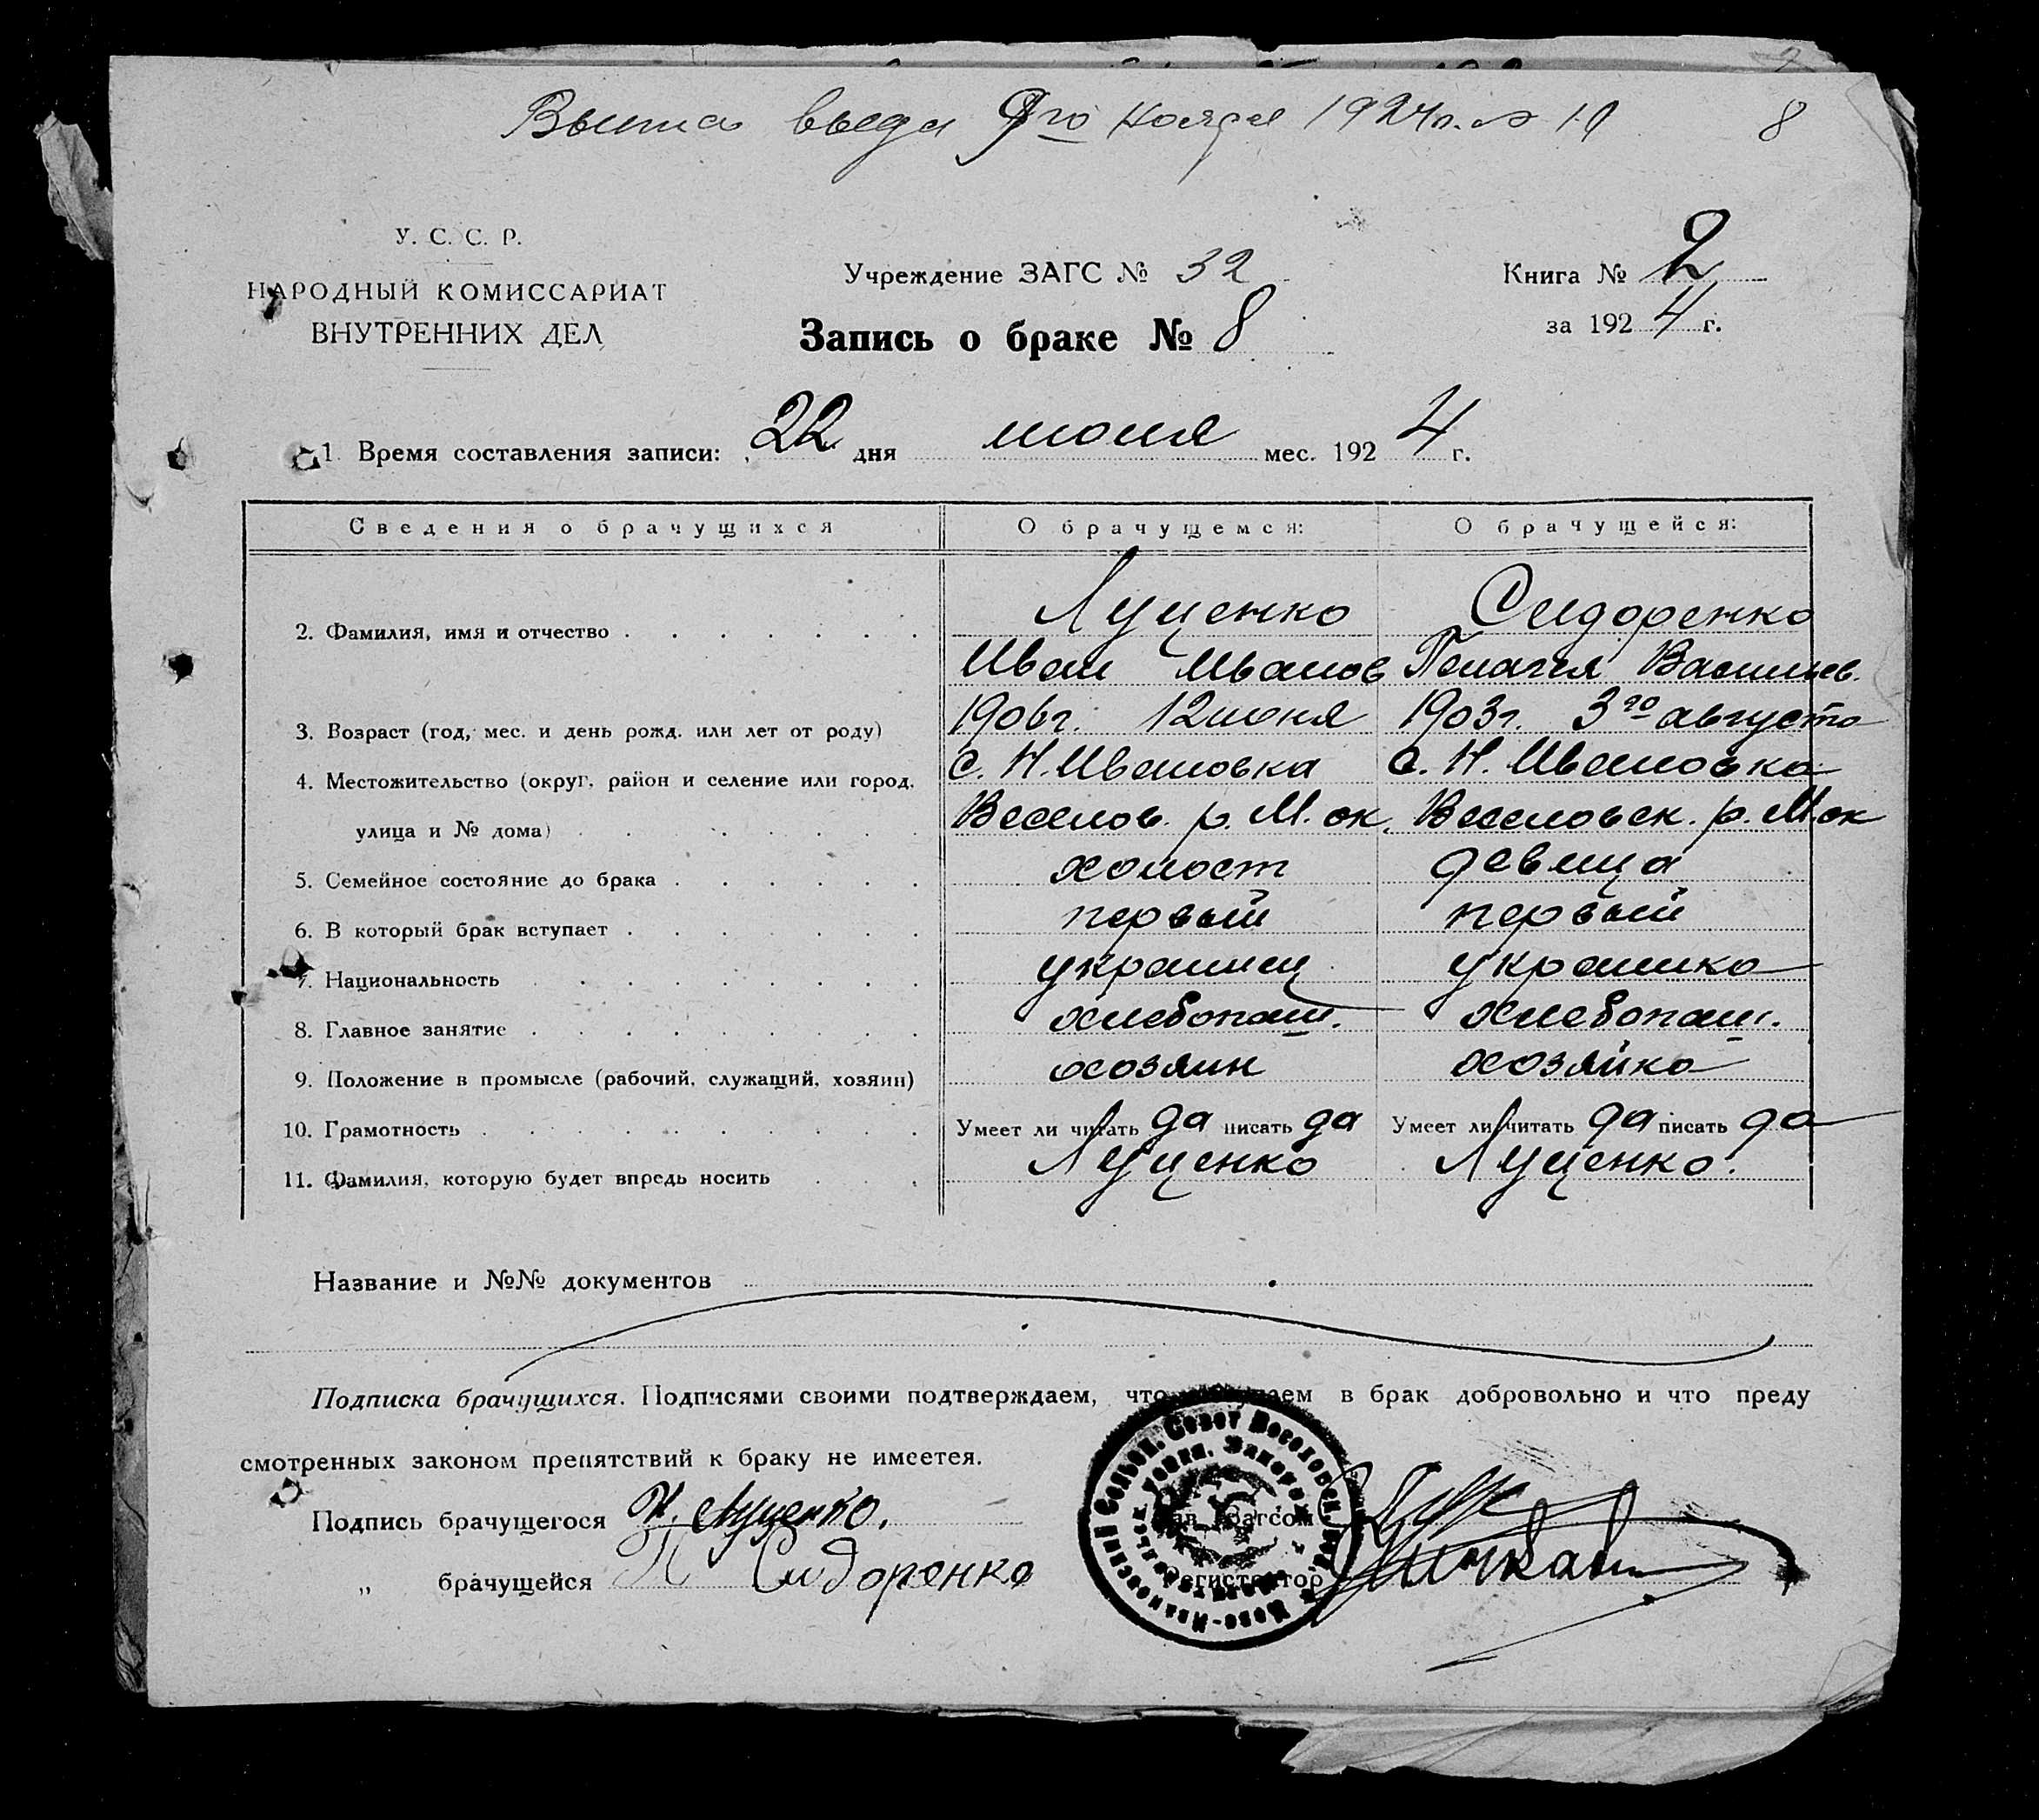 9го ноября 1924г. № 19 8
У. С. С. Р.
НАРОДНЫЙ КОМИССАРИАТ
ВНУТРЕННИХ ДЕЛ
Учреждение ЗАГС № 32
Запись о браке № 8
Книга № 2
за 1924 г.
1 Время составления записи: 22 дня июня мес. 1924 г.
Сведения о брачущихся О брачущемся: О брачущейся:
2. Фамилия, имя и отчество Луценко Сидоренко
Иван Иванов Пелагея Васильев.
3. Возраст (год, мес. и день рожд. или лет от роду) 1906г. 12 июня 1903г. 3го августа
4. Местожительство (округ, район и селение или город, с. Н. Ивановка с. Н. Ивановка
улица и № дома) Веселов. р. М. ок. Веселовск. р. М. ок
5. Семейное состояние до брака холост девица
6. В который брак вступает первый первый
7. Национальность украинец украинка
8. Главное занятие хлебопаш. хлебопаш.
9. Положение в промысле (рабочий, служащий, хозяин) хозяин хозяйка
10. Грамотность Умеет ли читать да писать да Умеет ли читать да писать да
11. Фамилия, которую будет впредь носить Луценко Луценко.
Название и №№ документов
Подписка брачущихся. Подписями своими подтверждаем, что в брак добровольно и что преду
смотренных законом препятствий к браку не имеется.
Подпись брачущегося И. Луценко.
„ брачущейся П Сидоренко
Зав. Загсом
Регистратор